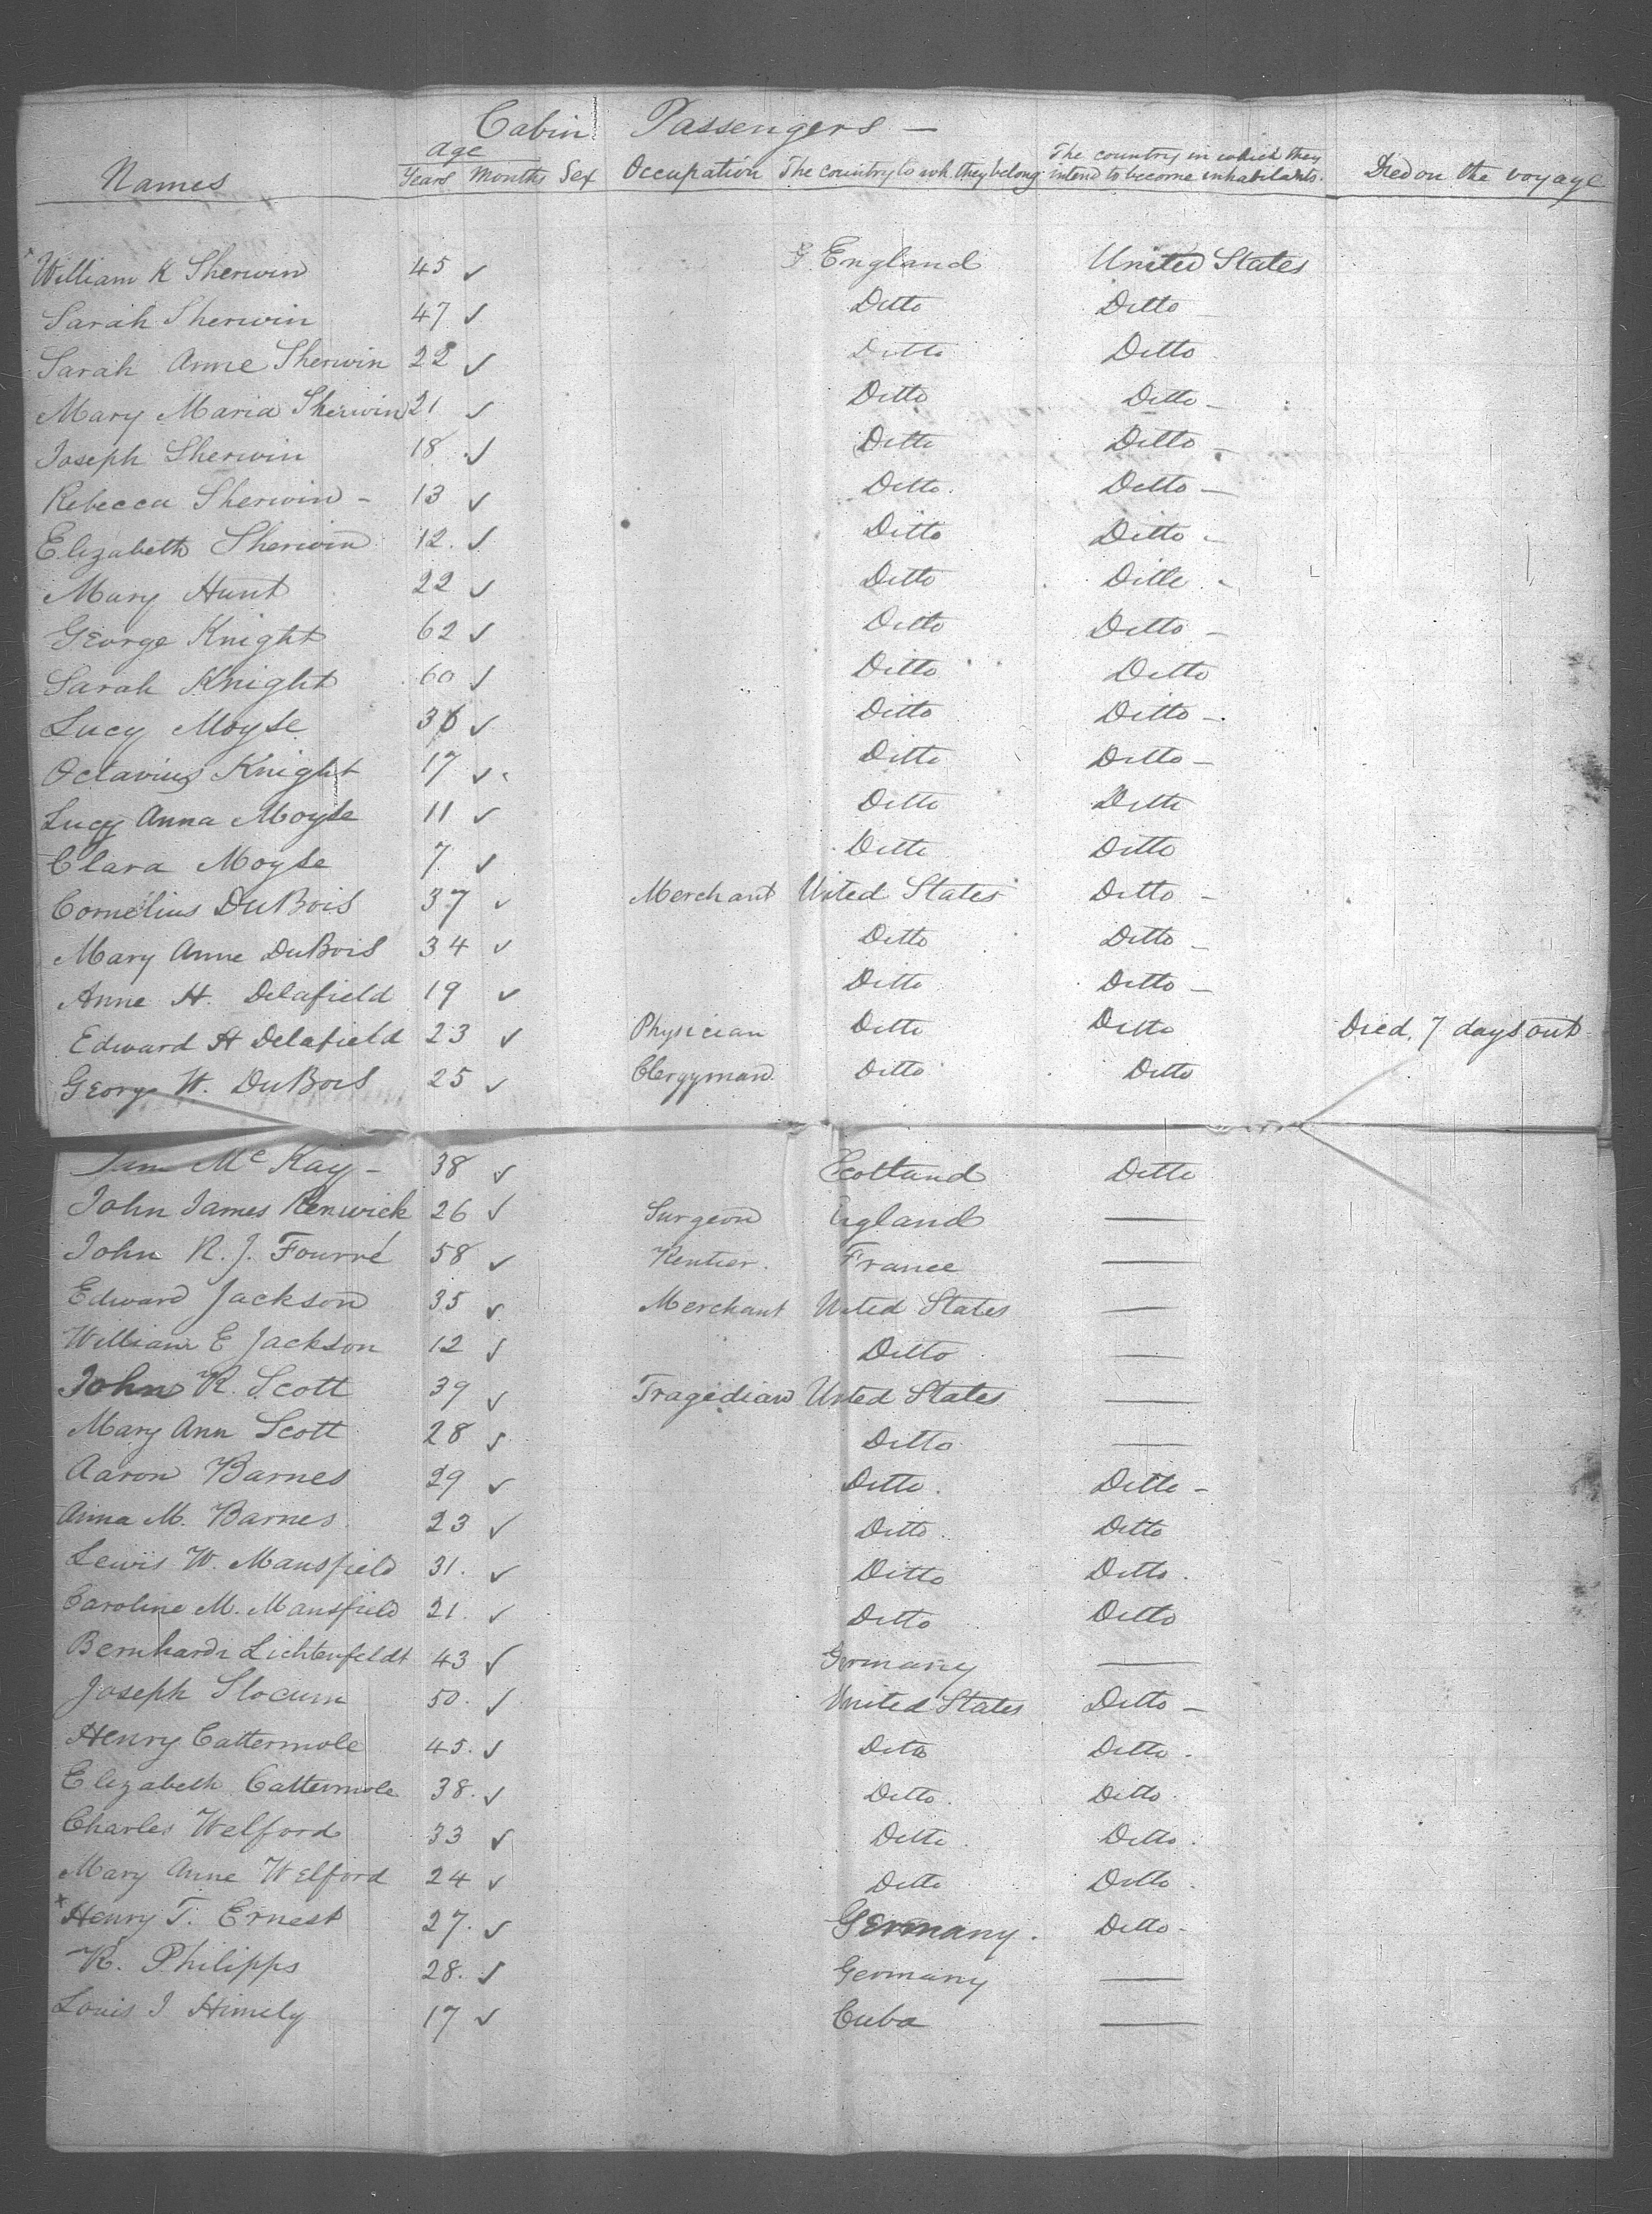 Cabin Passengers —
Names Age Years Months Sex Occupation The country to wh. they belong The country in which they intend to become inhabitants. Died on the voyage
William K Sherwin 45 ✓ England United States
Sarah Sherwin 47 ✓ Ditto Ditto —
Sarah Anne Sherwin 22 ✓ Ditto Ditto
Mary Maria Sherwin 21 ✓ Ditto Ditto —
Joseph Sherwin 18 ✓ Ditto Ditto —
Rebecca Sherwin - 13 ✓ Ditto. Ditto —
Elizabeth Sherwin 12. ✓ Ditto Ditto -
Mary Hunt 22 ✓ Ditto Ditto -
George Knight 62 ✓ Ditto Ditto —
Sarah Knight 60 ✓ Ditto Ditto
Lucy Moyse 36 ✓ Ditto Ditto —
Octavius Knight 17 ✓ Ditto Ditto —
Lucy Anna Moyse 11 ✓ Ditto Ditto
Clara Moyse 7. ✓ Ditto Ditto
Cornelius DuBois 37 ✓ Merchant United States Ditto —
Mary Anne DuBois 34 ✓ Ditto Ditto —
Anne H. Delafield 19 ✓ Ditto Ditto —
Edward H Delafield 23 ✓ Physician Ditto Ditto Died. 7 days out
George W. DuBois 25 ✓ Clergyman Ditto Ditto
Mc Kay - 38 ✓ Scotland Ditto
John James Renwick 26 ✓ Surgeon England —
John R. J. Fourré 58 ✓ Rentier. France —
Edward Jackson 35 ✓ Merchant United States —
William E Jackson 12 ✓ Ditto —
John R. Scott 39 ✓ Tragedian United States —
Mary Ann Scott 28 ✓ Ditto —
Aaron Barnes 29 ✓ Ditto. Ditto —
Anna M. Barnes 23 ✓ Ditto. Ditto
Lewis W. Mansfield 31. ✓ Ditto Ditto.
Caroline M. Mansfield 21. ✓ Ditto Ditto
Bernhardt Lichtenfeldt 43 ✓ Germany —
Joseph Slocum 50. ✓ United States Ditto —
Henry Cattermole 45. ✓ Ditto Ditto.
Elizabeth Cattermole 38. ✓ Ditto. Ditto
Charles Welford 33 ✓ Ditto. Ditto.
Mary Anne Welford 24 ✓ Ditto Ditto.
Henry T. Ernest 27. ✓ Germany. Ditto -
R. Philipps 28. ✓ Germany —
Louis J Himely 17 ✓ Cuba —